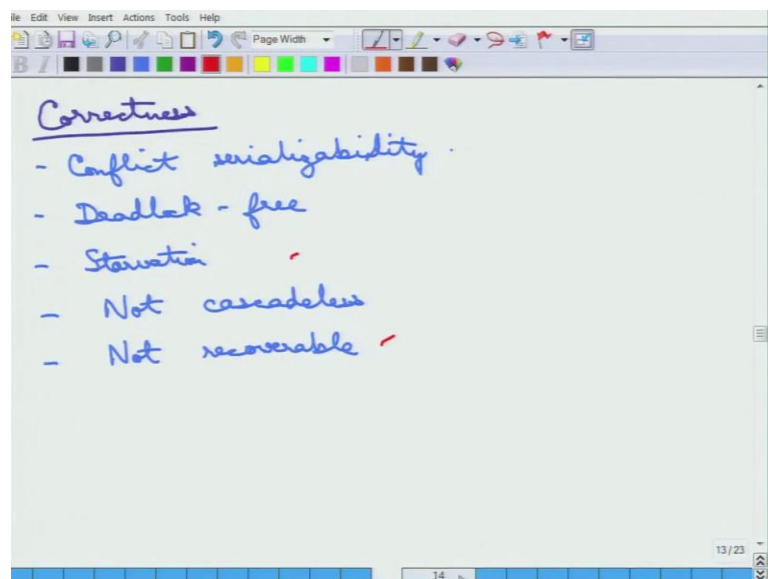 ile Edit View Insert Actions Tools Help
Page Width
B I
Correctness
- Conflict serializability.
- Deadlock - free
- Starvation
- Not cascadeless
- Not recoverable
13/23
14